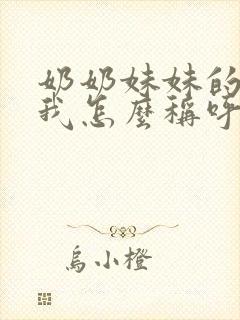 奶奶妹妹的
我怎麼稱呼
烏小橙